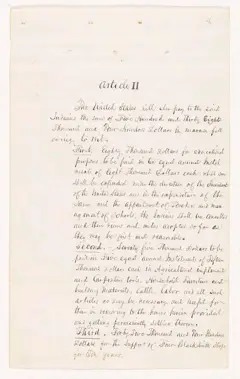 Article II
The United States will also pay to the said
Indians the sum of Two Hundred and Thirty Eight
Thousand and Four Hundred Dollars in manner fol-
lowing to wit.
First. Eighty Thousand Dollars for educational
purposes to be paid in ten equal annual instal-
ments of Eight Thousand Dollars each which sum
shall be expended under the direction of the President
of the United States and in the
and the employment of Teachers and man-
agement of Schools, the Indians shall be consulted
and their
may be just and reasonable.
Second. Seventy five Thousand Dollars to be
paid in five equal annual instalments of Fifteen
Thousand Dollars each in Agricultural implements
and Carpenters tools, Household Furniture and
building materials, Cattle, Labor and all such
articles as may be necessary and useful for
them in removing to the homes herein provided
and getting permanently settled thereon.
Third. Forty Two Thousand and Four Hundred
Dollars for the support of Four Blacksmith Shops
for ten years.